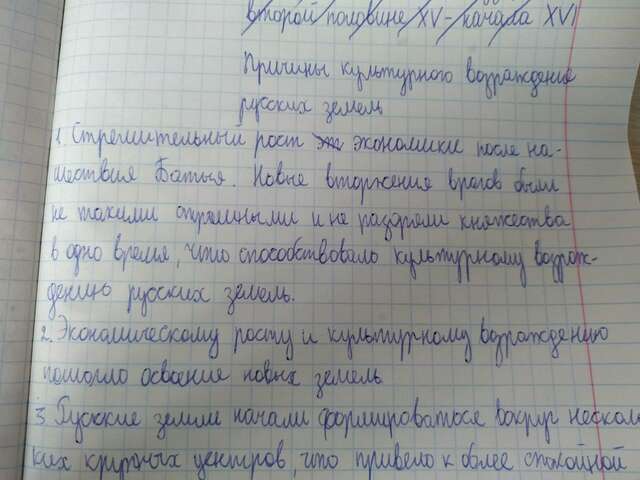 второй половине XV - начала XVI
Причины культурного возраждение
русских земель
1. Стремительный рост эк экономики после на-
шествия Батыя. Новые вторжение врагов были
не такими огромными и не разоряли княжества
в одно время, что способствовало культурному возраж-
дению русских земель.
2. Экономическому росту и культурному возраждению
помогло освоение новых земель
3. Русские земли начали формироваться вокруг несколь
ких крупных центров, что привело к более спокойной